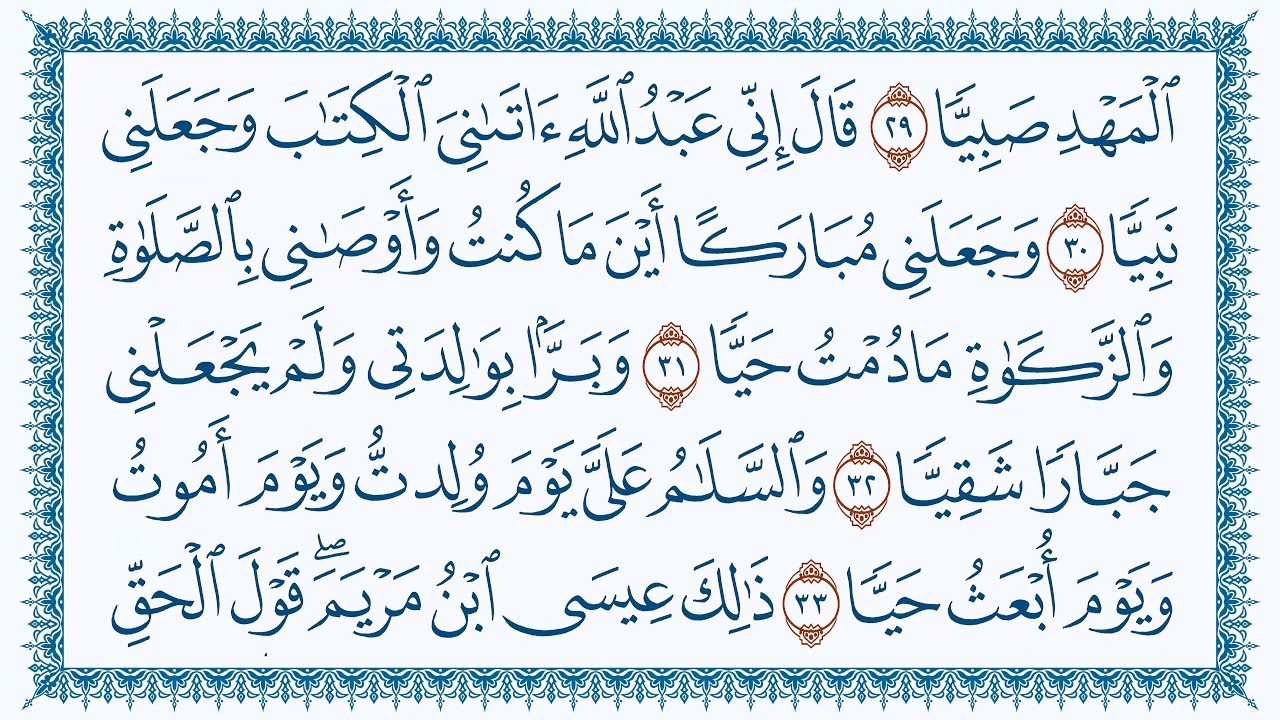 ٱلْمَهْدِ صَبِيًّا ٢٩ قَالَ إِنِّي عَبْدُ ٱللَّهِ ءَاتَىٰنِيَ ٱلْكِتَٰبَ وَجَعَلَنِي
نَبِيًّا ٣٠ وَجَعَلَنِي مُبَارَكًا أَيْنَ مَا كُنتُ وَأَوْصَٰنِي بِٱلصَّلَوٰةِ
وَٱلزَّكَوٰةِ مَا دُمْتُ حَيًّا ٣١ وَبَرًّۢا بِوَٰلِدَتِي وَلَمْ يَجْعَلْنِي
جَبَّارًا شَقِيًّا ٣٢ وَٱلسَّلَٰمُ عَلَيَّ يَوْمَ وُلِدتُّ وَيَوْمَ أَمُوتُ
وَيَوْمَ أُبْعَثُ حَيًّا ٣٣ ذَٰلِكَ عِيسَى ٱبْنُ مَرْيَمَ ۖ قَوْلَ ٱلْحَقِّ